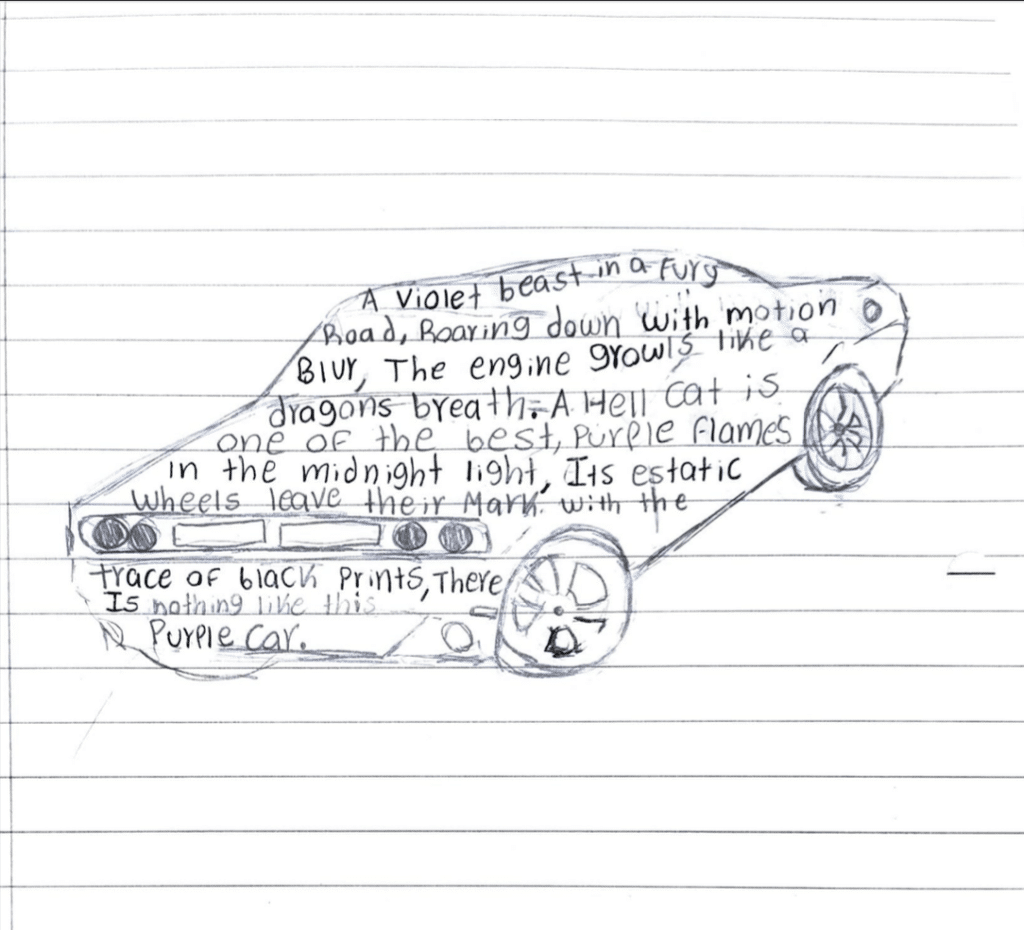 A Violet beast in a Fury
Road, Roaring down with motion
Blur, The engine growls like a
dragons breath. A Hell Cat is
one of the best, Purple Flames
in the midnight light, Its estatic
wheels leave their Mark. with the
trace of black Prints, There
Is nothing like this
Purple Car.